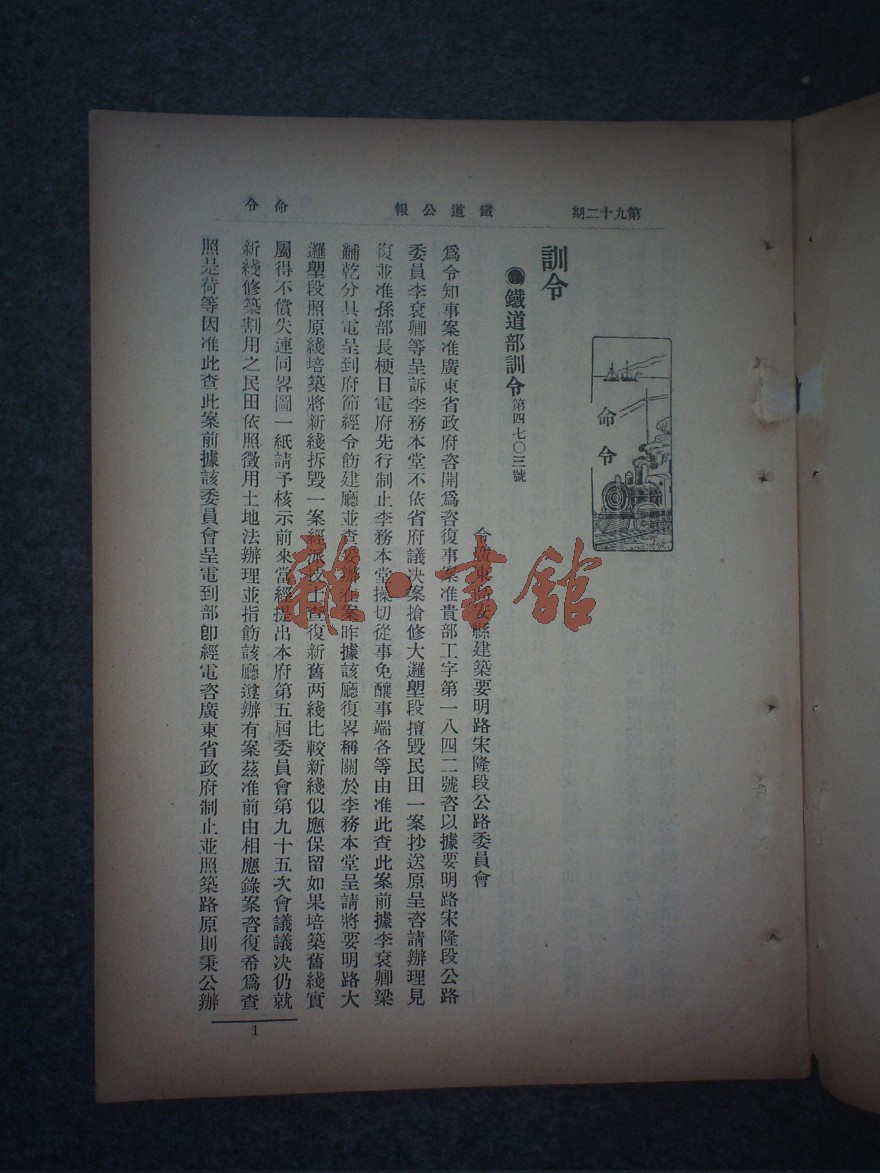 第九十二期
鐵道公報
命令
命令
訓令
●鐵道部訓令第四七〇三號
令廣東高要縣建築要明路宋隆段公路委員會
爲令知事案准廣東省政府咨開爲咨復事案准貴部工字第一八四二號咨以據要明路宋隆段公路
委員李袞卿等呈訴李務本堂不依省府議决案搶修大邏塱段擅毀民田一案抄送原呈咨請辦理見
復並准孫部長梗日電府先行制止李務本堂操切從事免釀事端各等由准此查此案前據李袞卿梁
黼乾分具電呈到府節經令飭建廳並查在案昨據該廳復畧稱關於李務本堂呈請將要明路大
邏塱段照原綫培築將新綫拆毀一案經派技士查復新舊两綫比較新綫似應保留如果培築舊綫實
屬得不償失連同畧圖一紙請予核示前來當經提出本府第五屆委員會第九十五次會議議决仍就
新綫修築割用之民田依照徵用土地法辦理並指飭該廳遵辦有案茲准前由相應錄案咨復希爲查
照是荷等因准此查此案前據該委員會呈電到部卽經電咨廣東省政府制止並照築路原則秉公辦
1
雜·書館